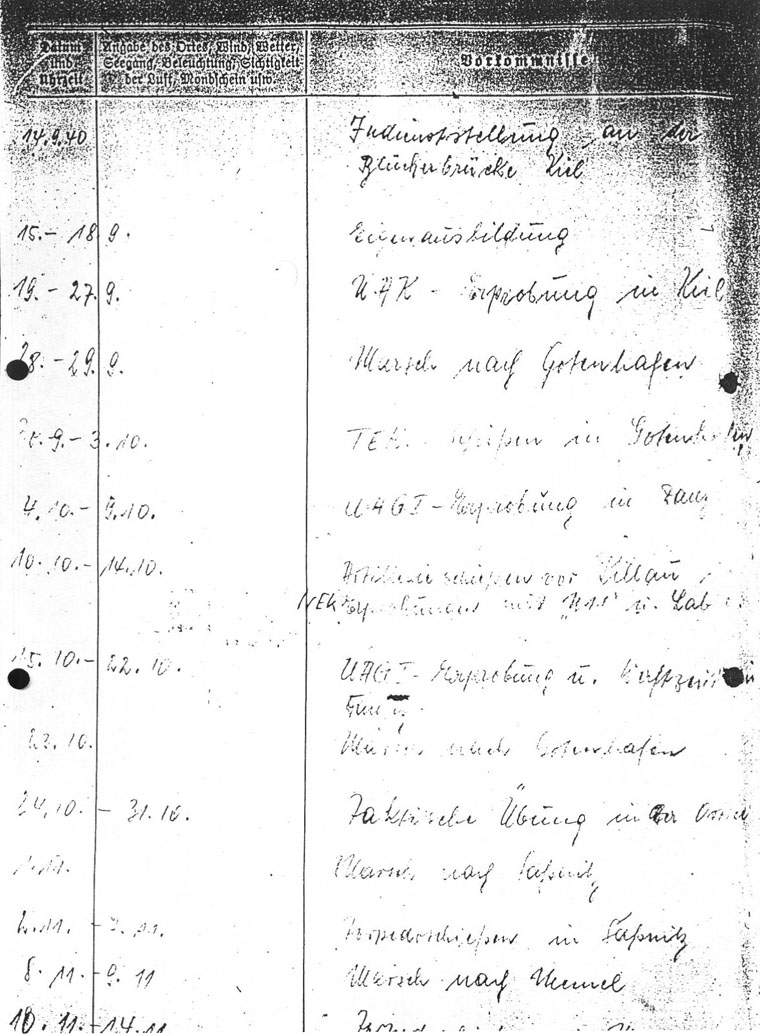 Datum
und
Uhrzeit
Angabe des Ortes, Wind, Wetter,
Seegang, Beleuchtung, Sichtigkeit
der Luft, Mondschein usw.
Vorkommnisse
14.9.40 Indienststellung an der
Blücherbrücke Kiel
15.- 18.9. Eigenausbildung
19.- 27.9. UAK - Erprobung in Kiel
28.-29.9. Marsch nach Gotenhafen
30.9.- 3.10. TEK. - schießen in Gotenhafen
4.10.- 9.10. UAG I - Erprobung in Danz
10.10.- 14.10. Artillerieschießen vor Pillau
NEK Erprobungen mit u.
15.10.- 22.10. UAG I - Erprobung u.
23.10. Marsch nach Gotenhafen
24.10. - 31.10. Taktische Übung in der
1.11. Marsch nach Saßnitz
2.11. - 7.11. Torpedoschießen in Saßnitz
8.11.- 9.11 Marsch nach Memel
10.11.-14.11